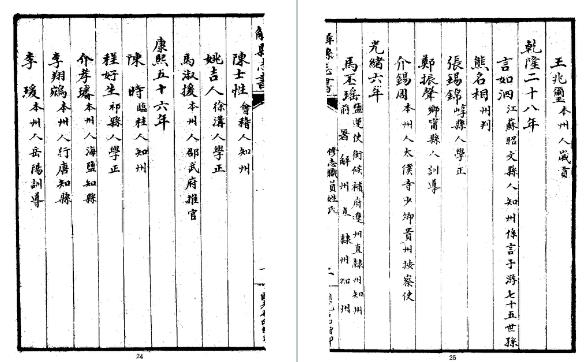 解縣志書
陳士性會稽人知州
姚吉人徐溝人學正
馬淑援本州人邵武府推官
康熙五十六年
陳時臨桂人知州
程好生祁縣人學正
介孝璿本州人海鹽知縣
李翔鳧本州人行唐知縣
李瑗本州人岳陽訓導
24
王兆璽本州人歲貢
乾隆二十八年
言如泗江蘇昭文縣人知州係言子游七十五世孫
熊名相州判
張錫錦崞縣人學正
鄭振聲鄉寧縣人訓導
介錫周本州人太僕寺少卿貴州按察使
光緒六年
馬丕瑤鹽運使銜候補府遼州直隸州知州
前署解州直隸州知州
解縣志書
修志職員姓氏
25